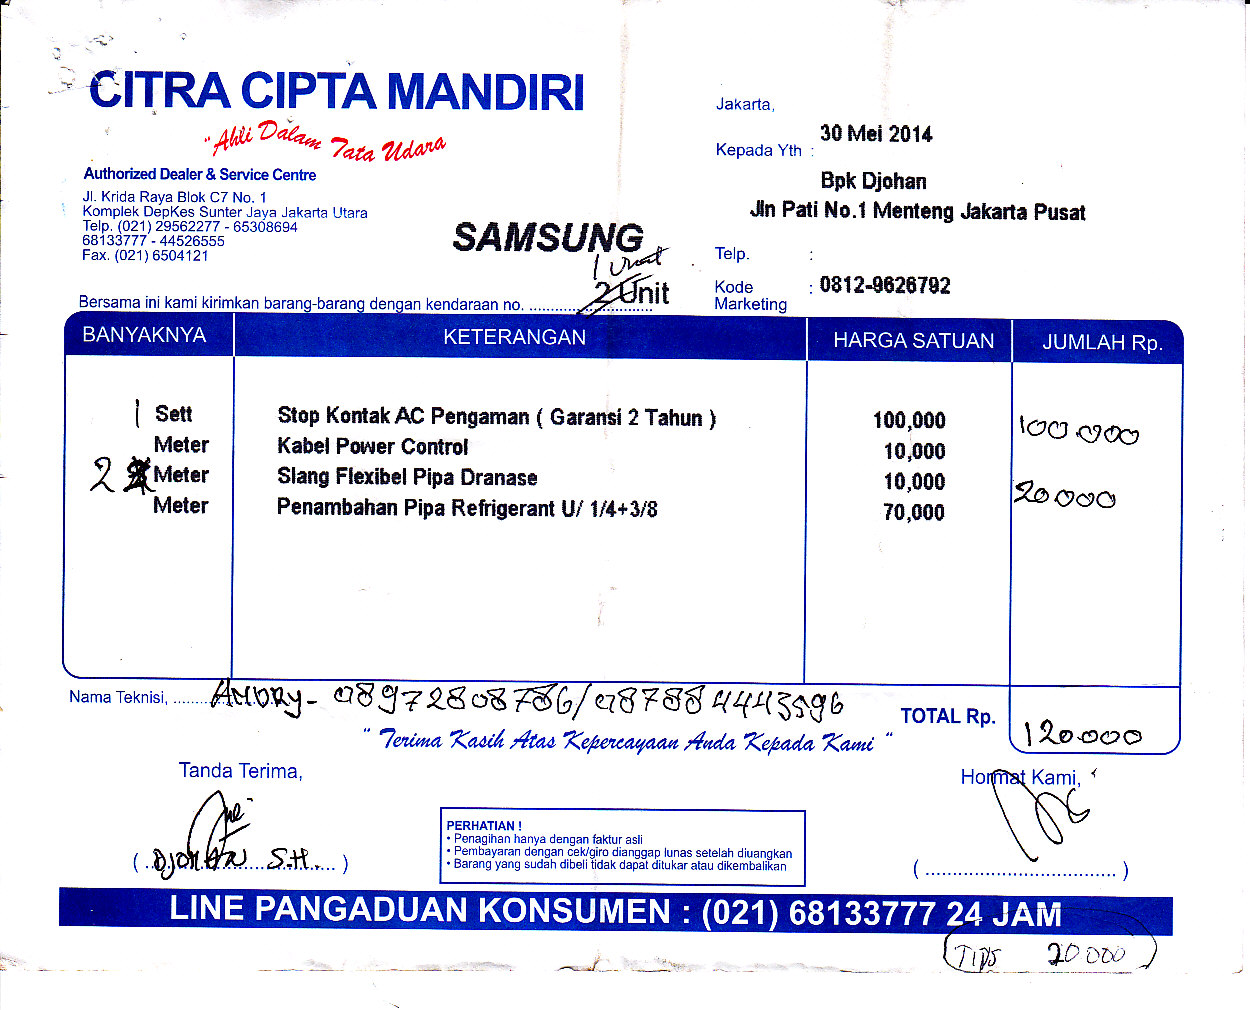 CITRA CIPTA MANDIRI
"Ahli Dalam Tata Udara
Authorized Dealer & Service Centre
Jl. Krida Raya Blok C7 No. 1
Komplek DepKes Sunter Jaya Jakarta Utara
Telp. (021) 29562277 - 65308694
68133777 - 44526555
Fax. (021) 6504121
SAMSUNG
1 Unit
2 Unit
Jakarta,
30 Mei 2014
Kepada Yth :
Bpk Djohan
Jln Pati No.1 Menteng Jakarta Pusat
Telp. :
Kode Marketing : 0812-9626792
Bersama ini kami kirimkan barang-barang dengan kendaraan no. ............................
BANYAKNYA KETERANGAN HARGA SATUAN JUMLAH Rp.
1 Sett Stop Kontak AC Pengaman ( Garansi 2 Tahun ) 100,000 100 000
Meter Kabel Power Control 10,000
2 Meter Slang Flexibel Pipa Dranase 10,000 20 000
Meter Penambahan Pipa Refrigerant U/ 1/4+3/8 70,000
Nama Teknisi, ........ - 08972808786/087884443596
TOTAL Rp. 120.000
" Terima Kasih Atas Kepercayaan Anda Kepada Kami "
Tanda Terima,
Hormat Kami,
PERHATIAN !
• Penagihan hanya dengan faktur asli
• Pembayaran dengan cek/giro dianggap lunas setelah diuangkan
• Barang yang sudah dibeli tidak dapat ditukar atau dikembalikan
( Djohan S.H. )
( .................................. )
LINE PANGADUAN KONSUMEN : (021) 68133777 24 JAM
TIPS 20 000